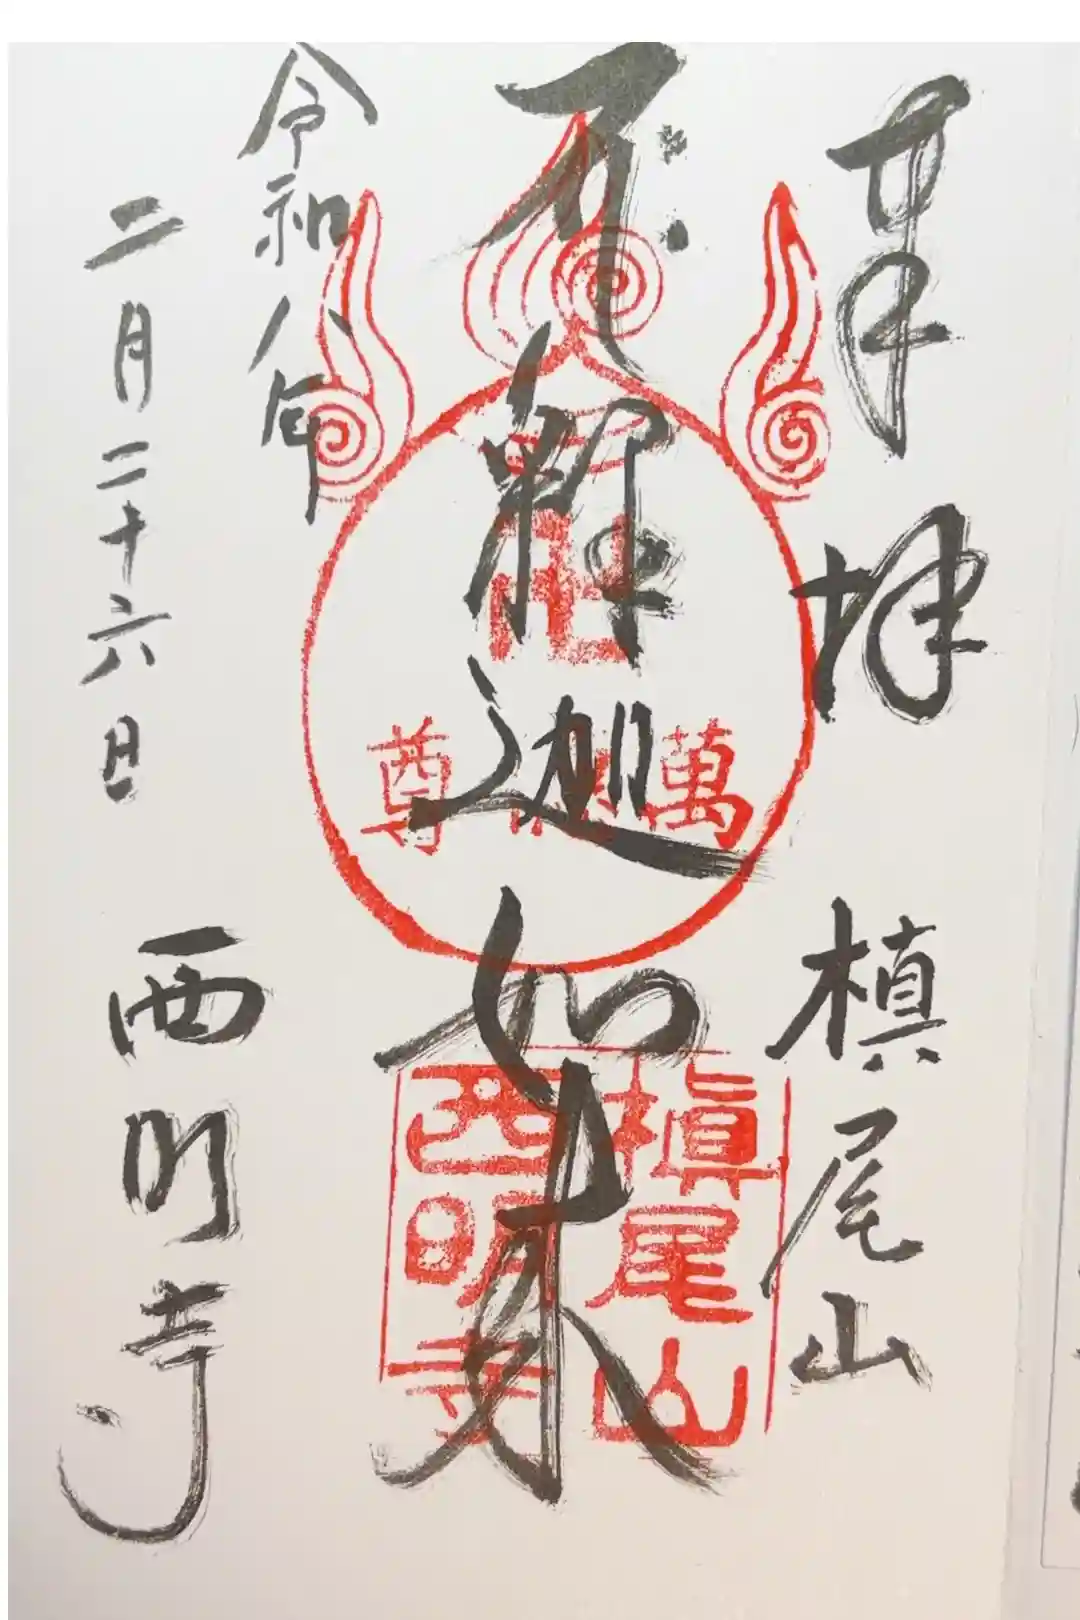 奉拝 槙尾山
釋迦如来
令和八年
二月二十六日 西明寺
萬
尊
槇尾山
西明寺